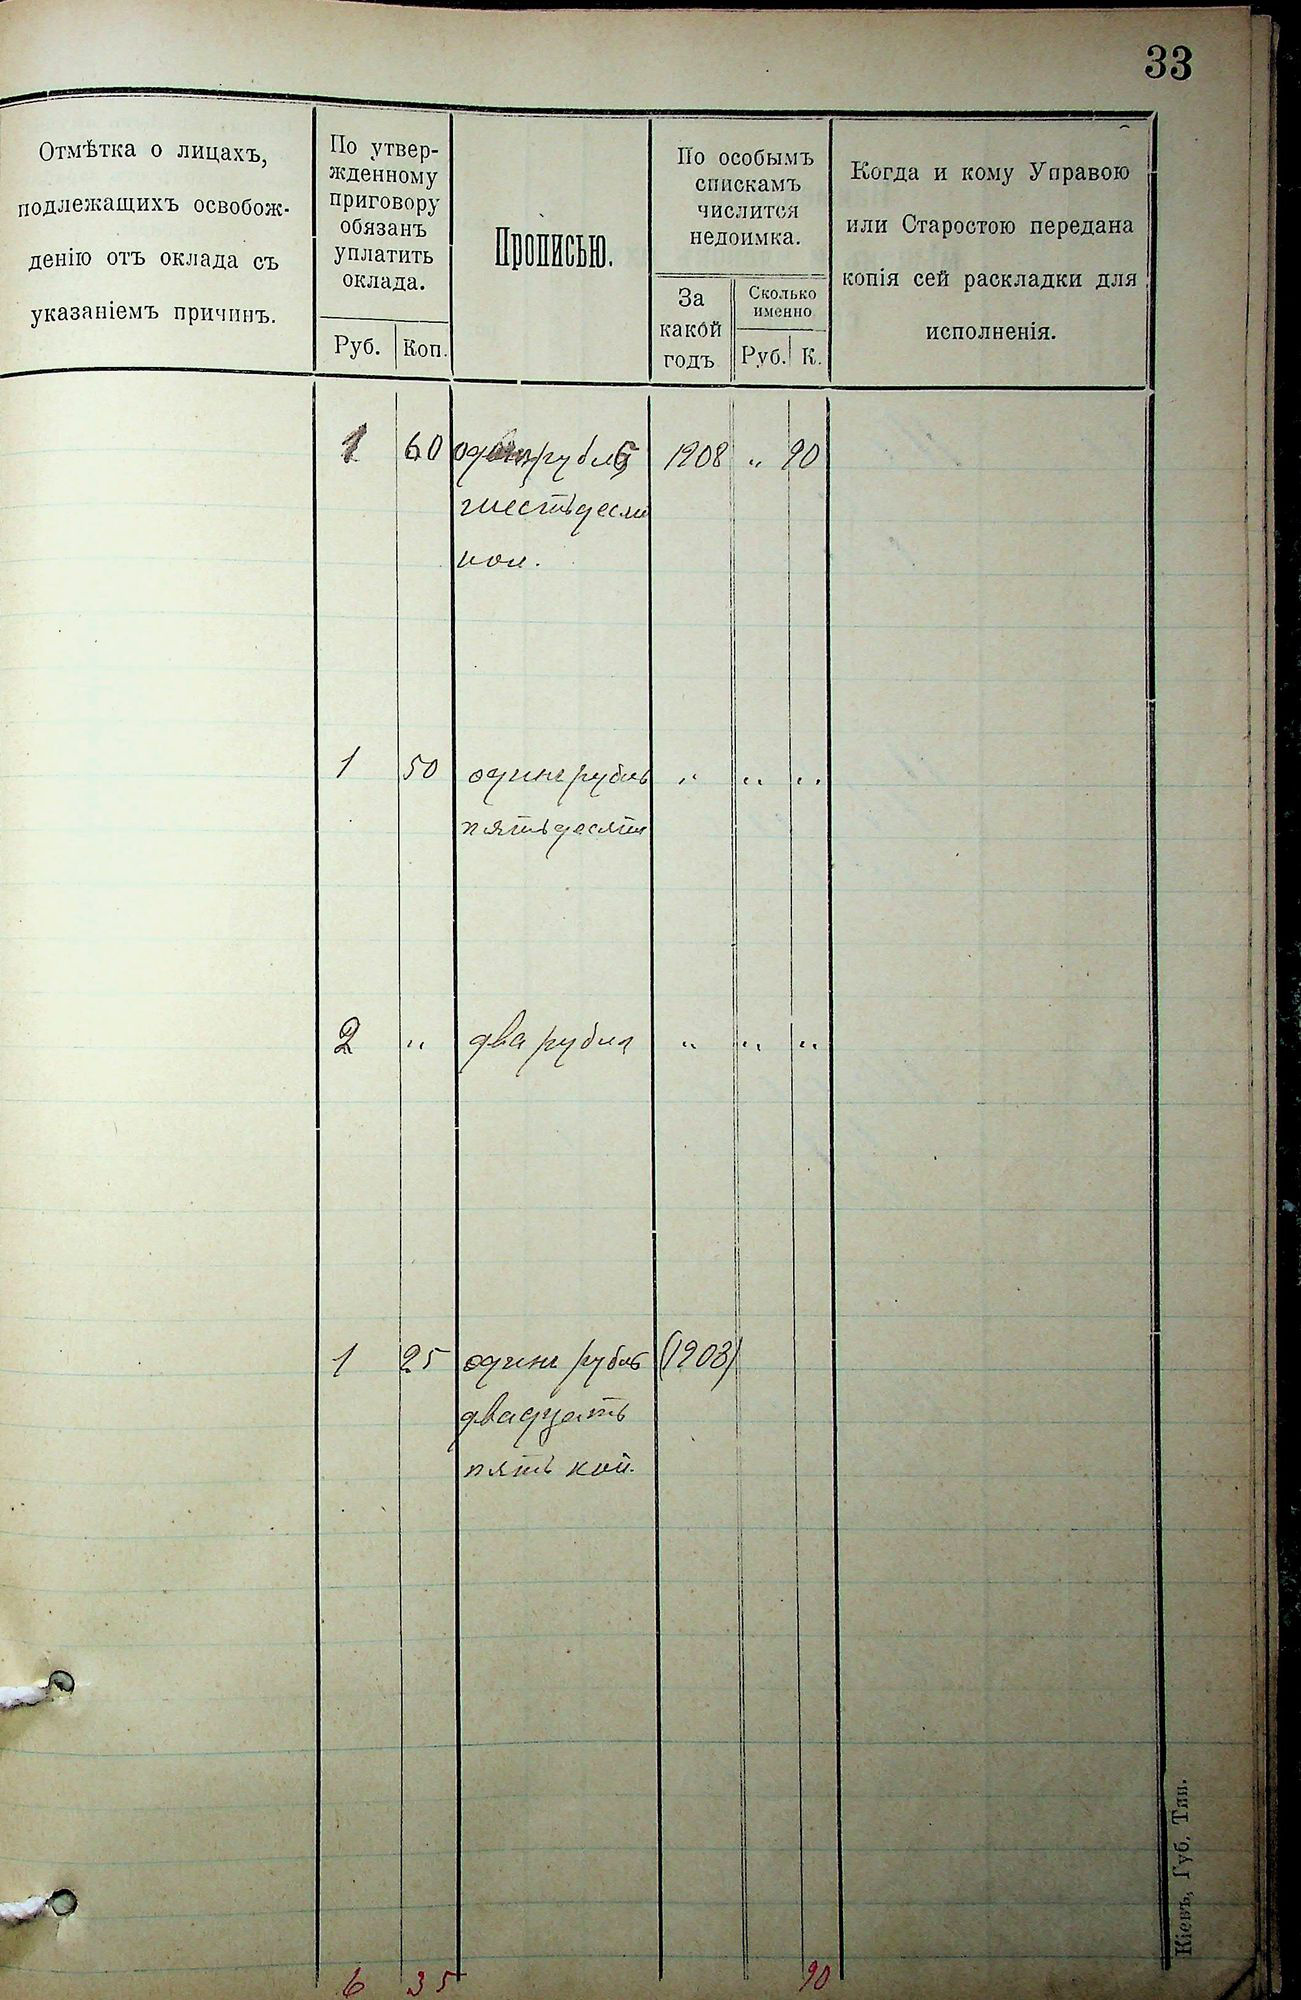 33
Отмѣтка о лицахъ,
подлежащихъ освобож-
денію отъ оклада съ
указаніемъ причинъ.
По утвер-
жденному
приговору
обязанъ
уплатить
оклада.
Руб. Коп.
Прописью.
По особымъ
спискамъ
числится
недоимка.
За
какой
годъ
Сколько
именно
Руб. К.
Когда и кому Управою
или Старостою передана
копія сей раскладки для
исполненія.
1 60 одинъ рубль 1908 „ 90
шестьдесят
коп.
1 50 одинъ рубль „ „ „
пятьдесят
2 „ два рубля „ „ „
1 25 одинъ рубль (1908)
двадцать
пять коп.
6 35 90
Кіевъ, Губ. Тип.